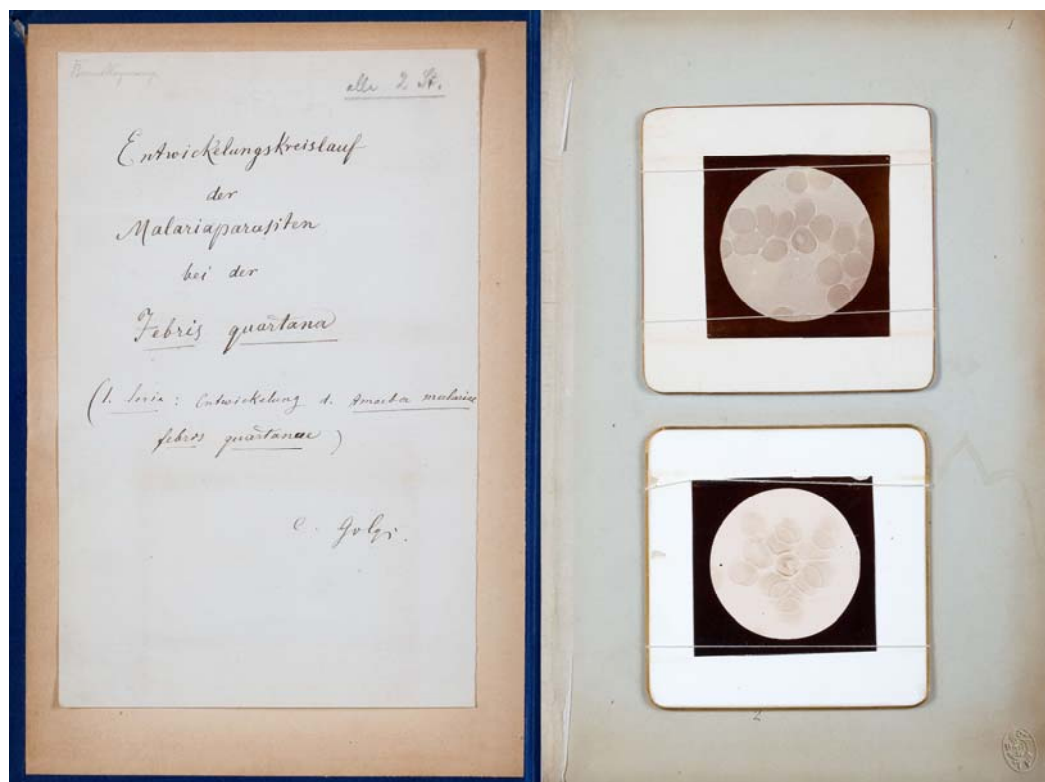 alle 2 St.
Entwickelungskreislauf
der
Malariaparasiten
bei der
Febris quartana
(1. Serie: Entwickelung d. Amoeba malariae
febris quartanae)
C. Golgi.
1
2